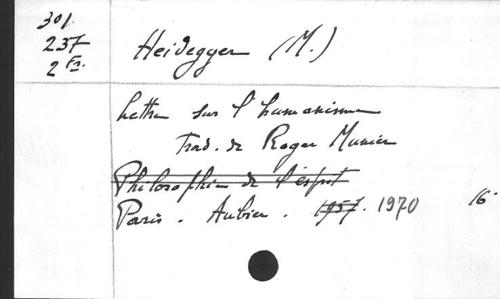 301.
237
2 Fz.
Heidegger (M.)
Lettre sur l'humanisme
Trad. de Roger Munier
Philosophie de l'esprit
Paris. Aubier. 1957. 1970 16°